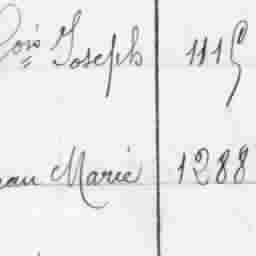 çois Joseph 1115
ean Marie 1288